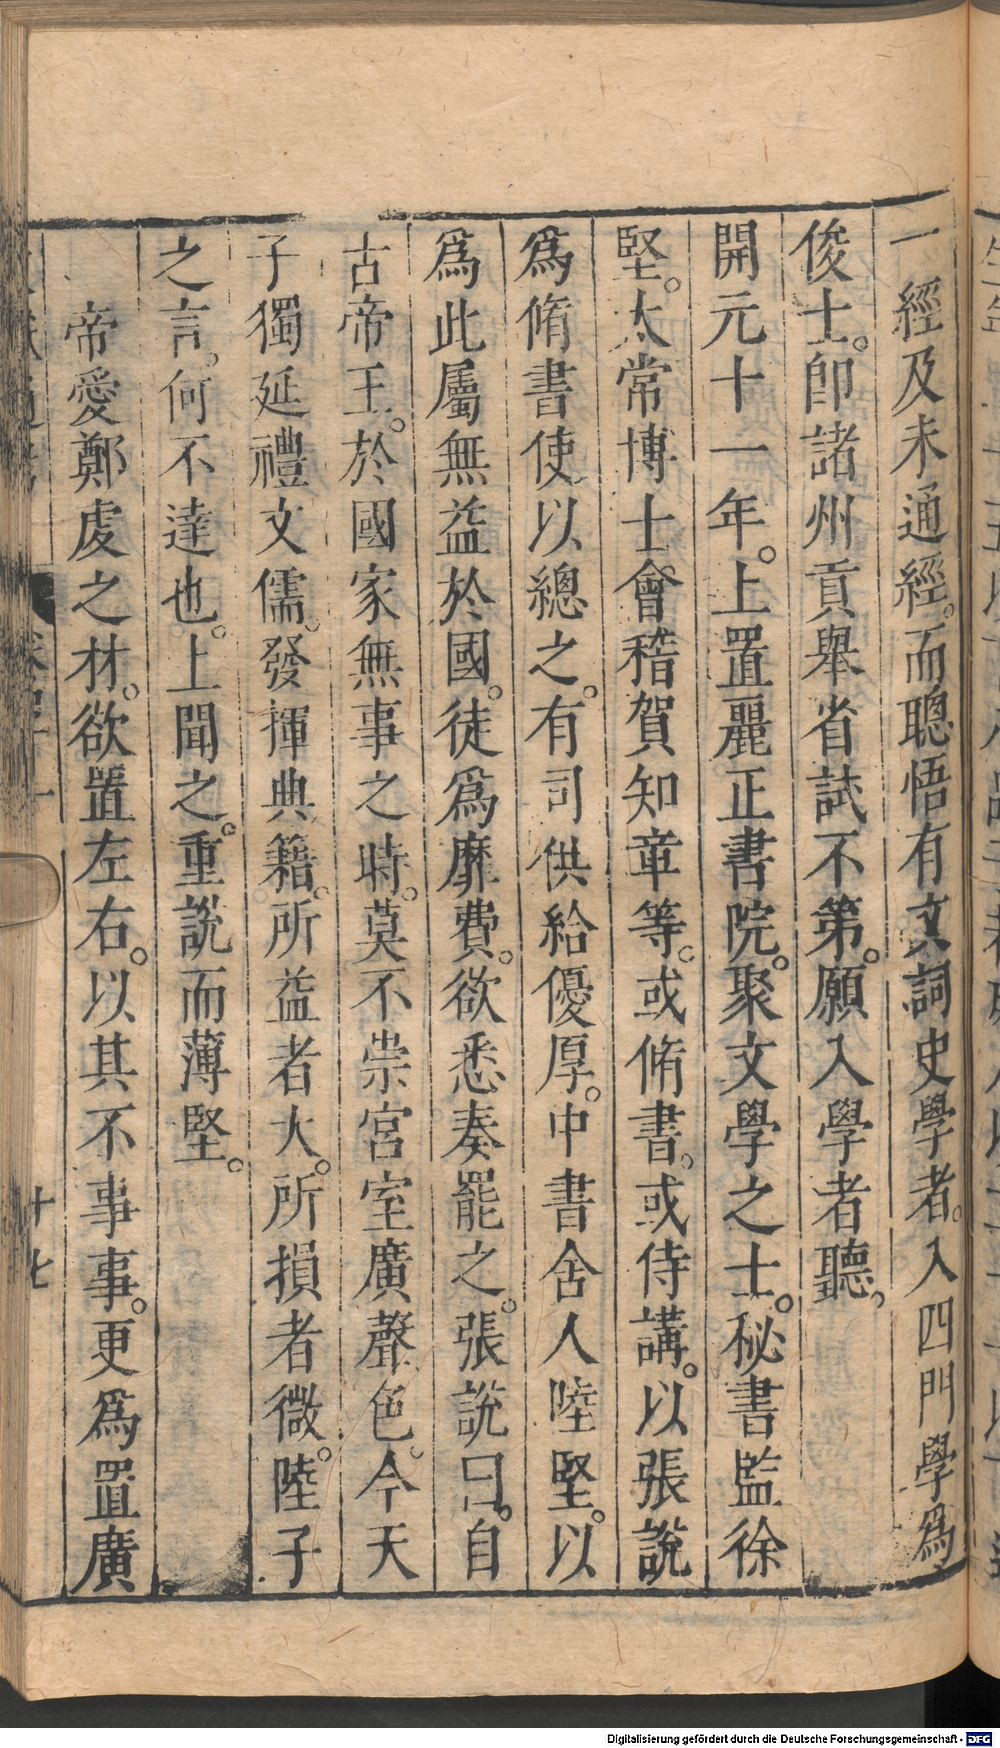 一經及未通經。而聰悟有文詞史學者。入四門學爲
俊士。卽諸州貢舉省試不第。願入學者聽。
開元十一年。上置麗正書院。聚文學之士。秘書監徐
堅。太常博士會稽賀知章等。或脩書。或侍講。以張說
爲脩書使以總之。有司供給優厚。中書舍人陸堅。以
爲此屬無益於國。徒爲靡費。欲悉奏罷之。張說曰。自
古帝王。於國家無事之時。莫不崇宮室廣聲色。今天
子獨延禮文儒。發揮典籍。所益者大。所損者微。陸子
之言。何不達也。上聞之。重說而薄堅。
帝愛鄭虔之材。欲置左右。以其不事事。更爲置廣
十七
Digitalisierung gefördert durch die Deutsche Forschungsgemeinschaft - DFG